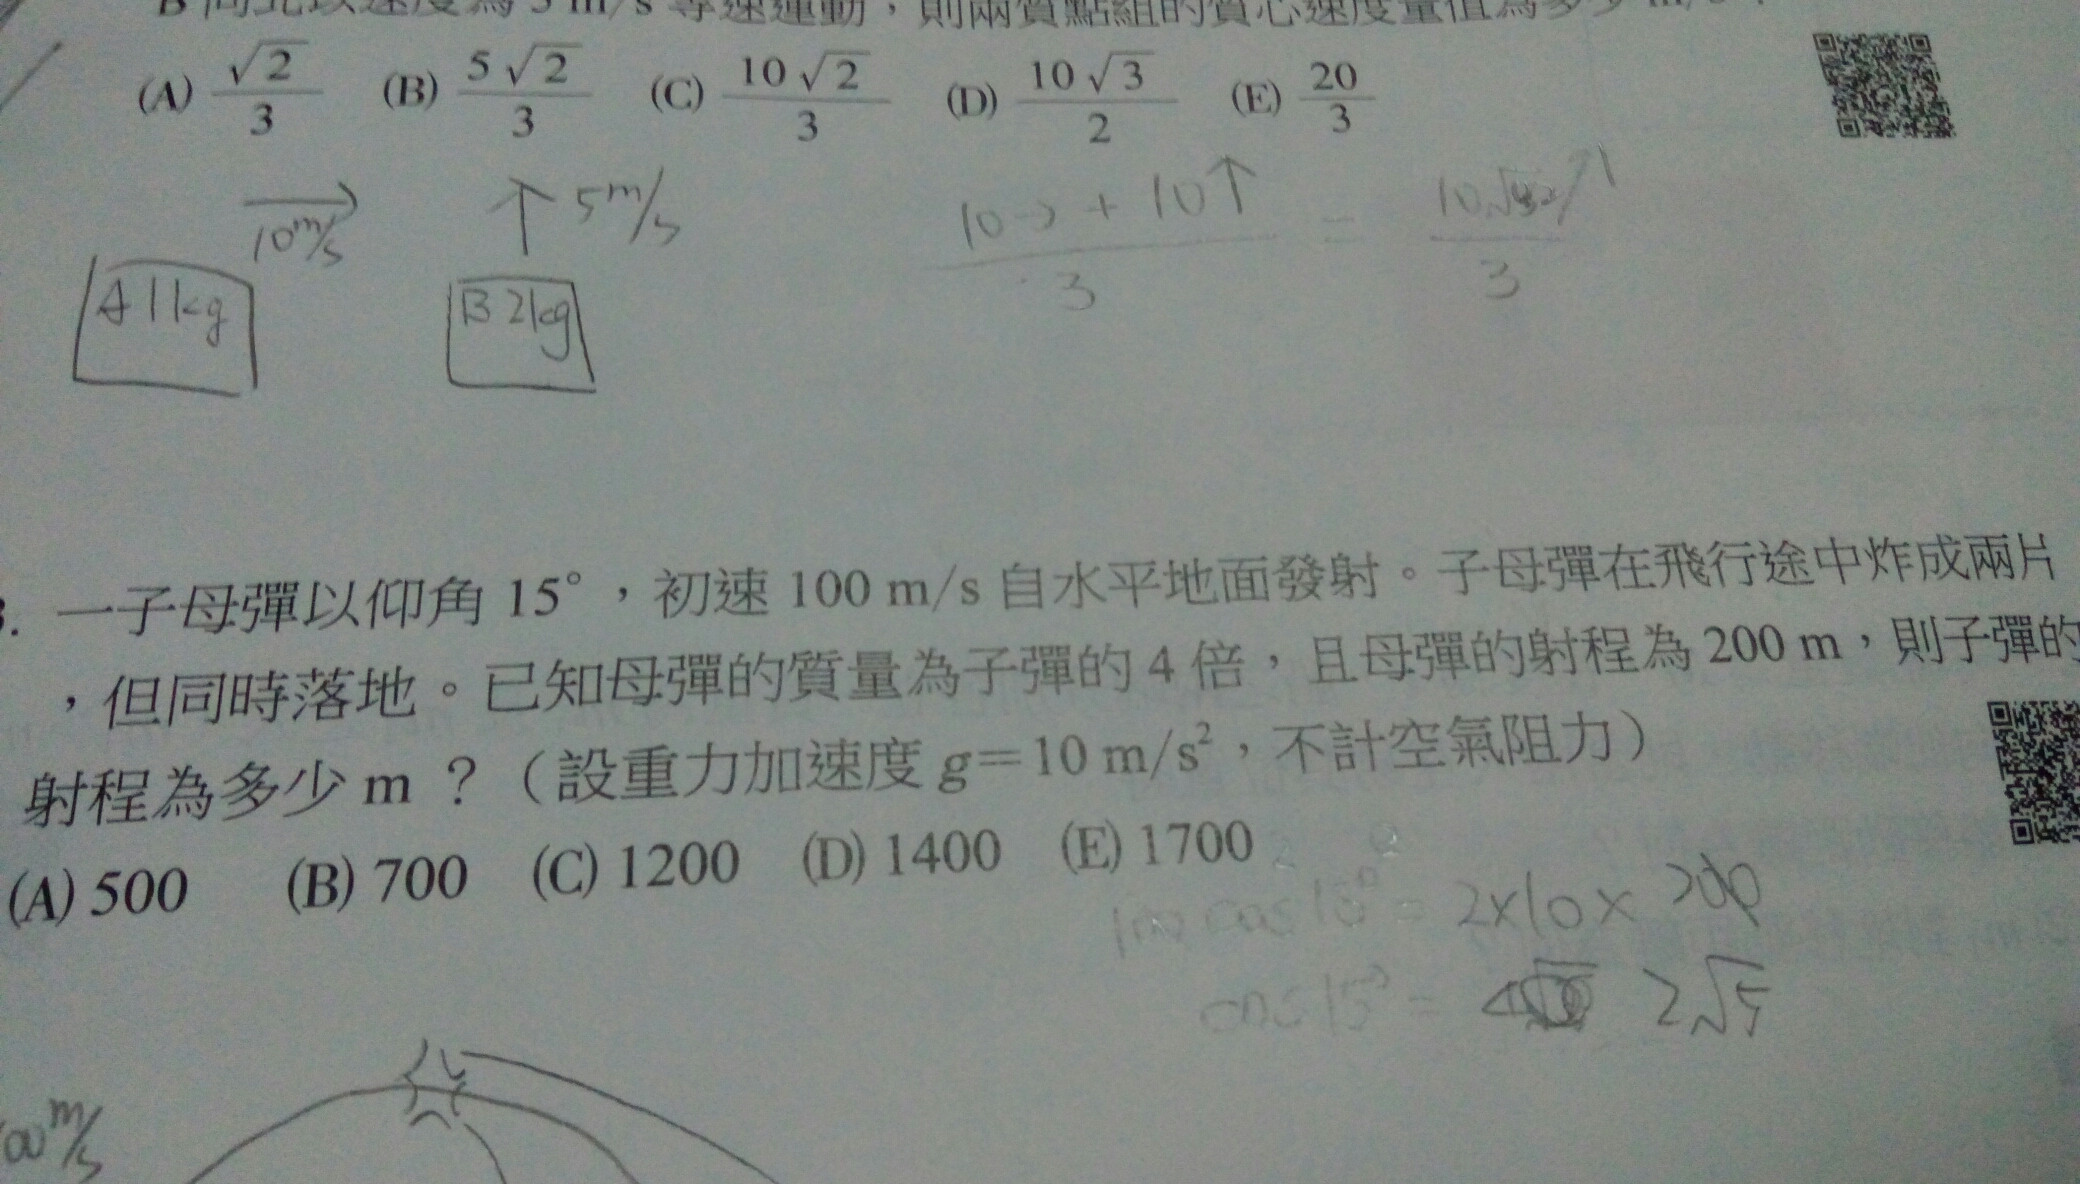 B 向北以速度為 5 m/s 等速運動，則兩質點組的質心速度量值為多少 m/s？
(A) √2/3 (B) 5√2/3 (C) 10√2/3 (D) 10√3/2 (E) 20/3
10 m/s ↑ 5 m/s
A 1kg B 2kg
(10→ + 10↑)/3 = 10√2/3
一子母彈以仰角 15°，初速 100 m/s 自水平地面發射。子母彈在飛行途中炸成兩片
，但同時落地。已知母彈的質量為子彈的 4 倍，且母彈的射程為 200 m，則子彈的
射程為多少 m ？（設重力加速度 g＝10 m/s²，不計空氣阻力）
(A) 500 (B) 700 (C) 1200 (D) 1400 (E) 1700
100² cos15°² = 2×10× 200
cos15° = 2√5
00 m/s